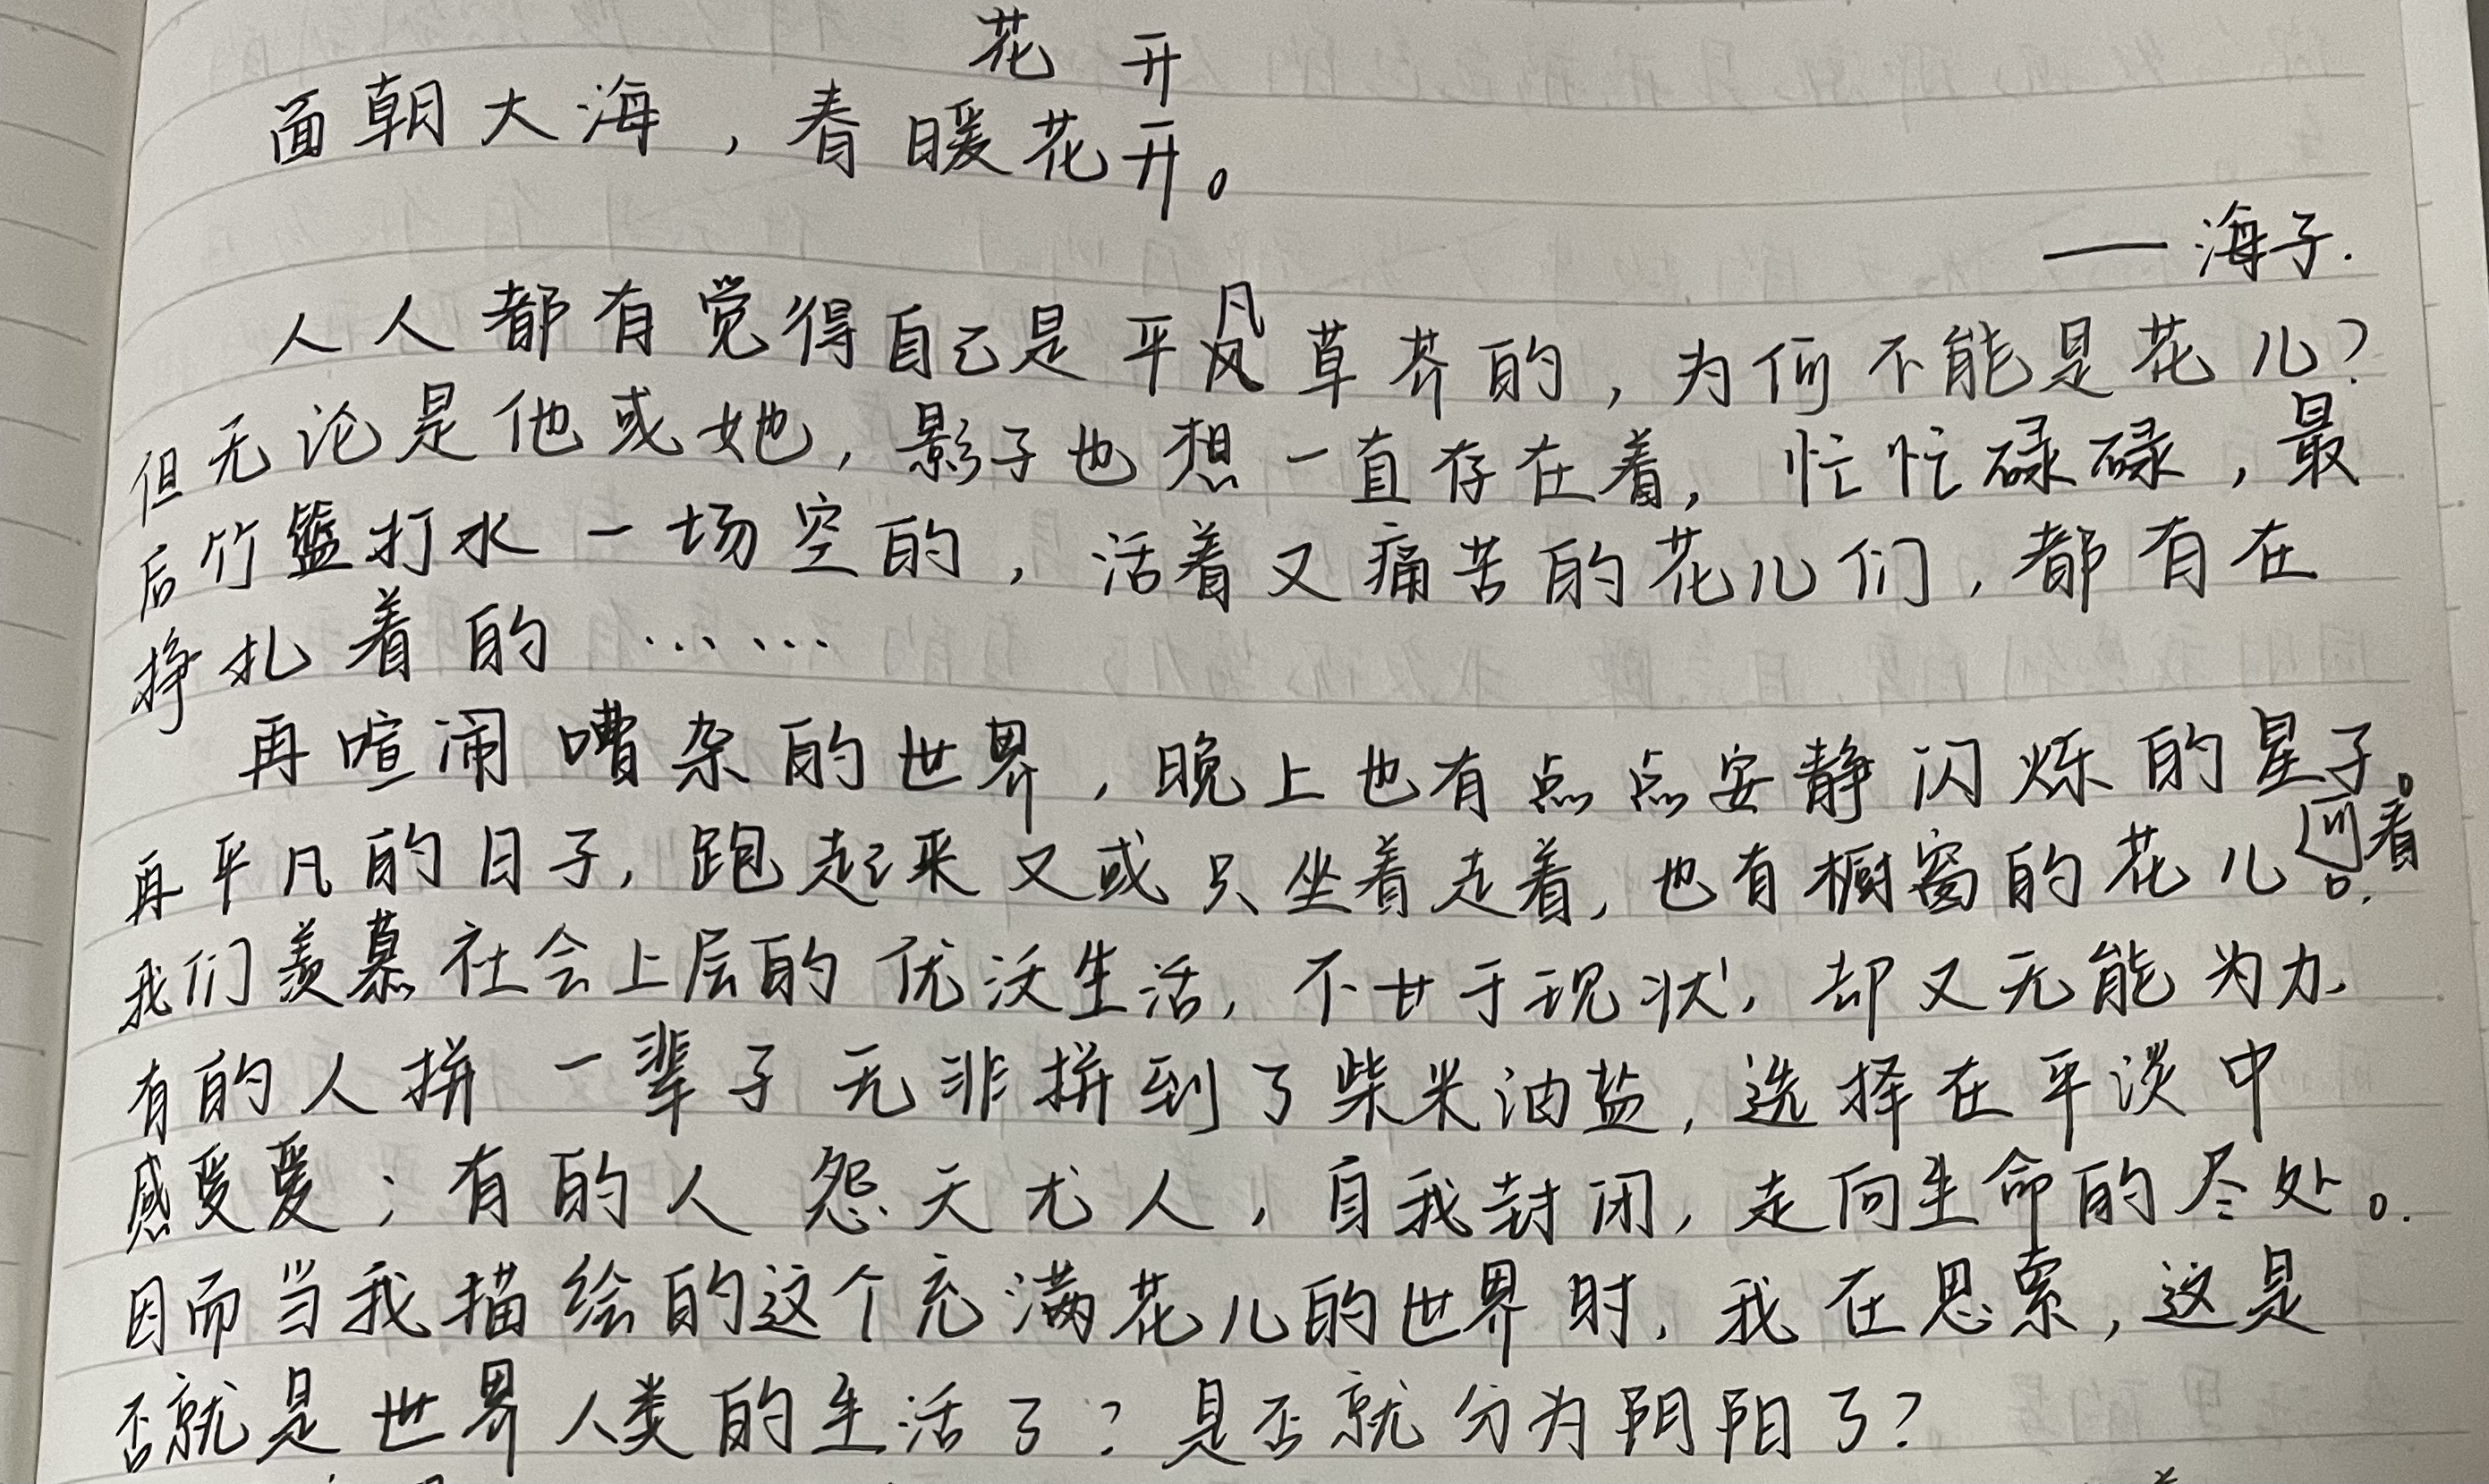 花开
面朝大海，春暖花开。
——海子.
人人都有觉得自己是平凡草芥的，为何不能是花儿？
但无论是他或她，影子也想一直存在着，忙忙碌碌，最
后竹篮打水一场空的，活着又痛苦的花儿们，都有在
挣扎着的……
再喧闹嘈杂的世界，晚上也有点点安静闪烁的星子。
再平凡的日子，跑起来又或只坐着走着，也有橱窗的花儿问看。
我们羡慕社会上层的优沃生活，不甘于现状，却又无能为力，
有的人拼一辈子无非拼到了柴米油盐，选择在平淡中
感受爱；有的人怨天尤人，自我封闭，走向生命的尽处。
因而当我描绘的这个充满花儿的世界时，我在思索，这是
否就是世界人类的生活了？是否就分为阴阳了？